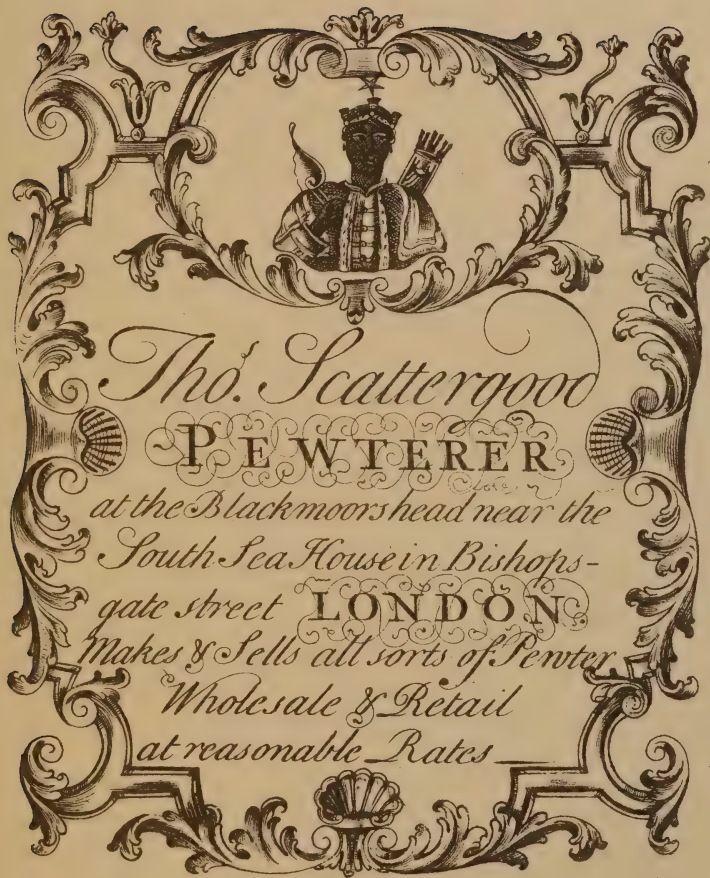 Tho.s Scattergood
PEWTERER
at the Blackmoors head near the
South Sea House in Bishops-
gate street LONDON
Makes & Sells all sorts of Pewter
Wholesale & Retail
at reasonable Rates